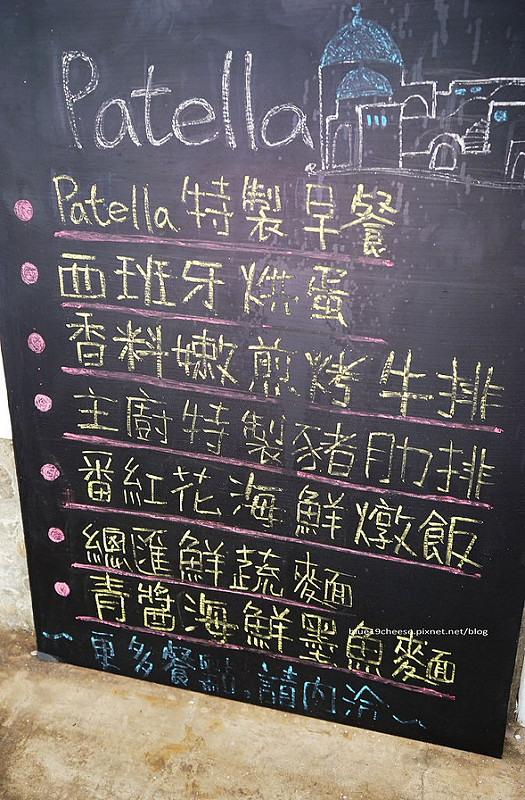 Patella
Patella 特製早餐
西班牙烘蛋
香料嫩煎烤牛排
主廚特製豬肋排
番紅花海鮮燉飯
總匯鮮蔬麵
青醬海鮮墨魚麵
blue19cheese.pixnet.net/blog
~更多餐點,請內洽~